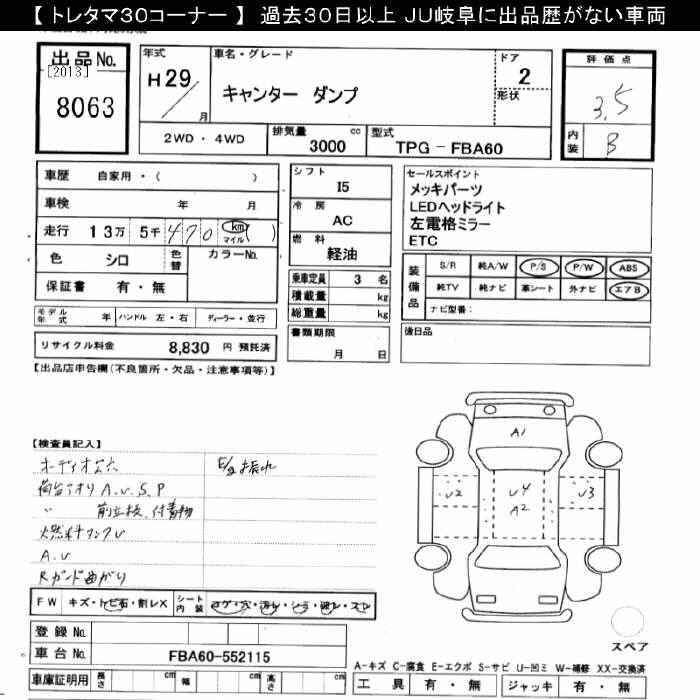 【 トレタマ30コーナー 】 過去30日以上 JU岐阜に出品歴がない車両
出品No.
[2013]
8063
年式
H29
月
車名・グレード
キャンター ダンプ
ドア
2
形状
2WD ・ 4WD
排気量
3000 cc
型式
TPG－FBA60
評価点
3.5
内装
B
車歴 自家用・( )
車検 年 月
走行 13万 5千 470 km マイル ( )
色 シロ 色替 カラーNo.
保証書 有・無
モデル年式 年 ハンドル 左・右 ディーラー・並行
リサイクル料金 8,830 円 預託済
シフト
I5
冷房
AC
燃料
軽油
乗車定員 3 名
積載量 kg
総重量 kg
書類期限
月 日
セールスポイント
メッキパーツ
LEDヘッドライト
左電格ミラー
ETC
装備品
S/R 純A/W P/S P/W ABS
純TV 純ナビ 革シート 外ナビ エアB
ナビ型番：
後日品
【出品店申告欄(不良箇所・欠品・注意事項等)】
【検査員記入】
オーディオ欠
荷台アオリ A.U.S.P
〃 前立板、付着物
燃料タンクU
A.U
Rガード曲がり
A1
U2
U4
A2
U3
スペア
FW キズ・トビ石・割レX シート内装 コゲ・穴・汚レ・シミ・破レ・スレ
登録No.
車台No. FBA60-552115
車庫証明用 cm 幅 cm 高さ cm
A-キズ C-腐食 E-エクボ S-サビ U-凹ミ W-補修 XX-交換済
工具 有・無 ジャッキ 有・無